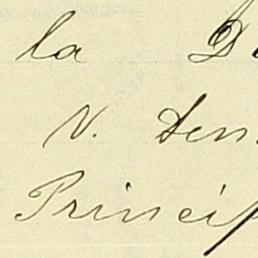 la D
N. Den
Princip